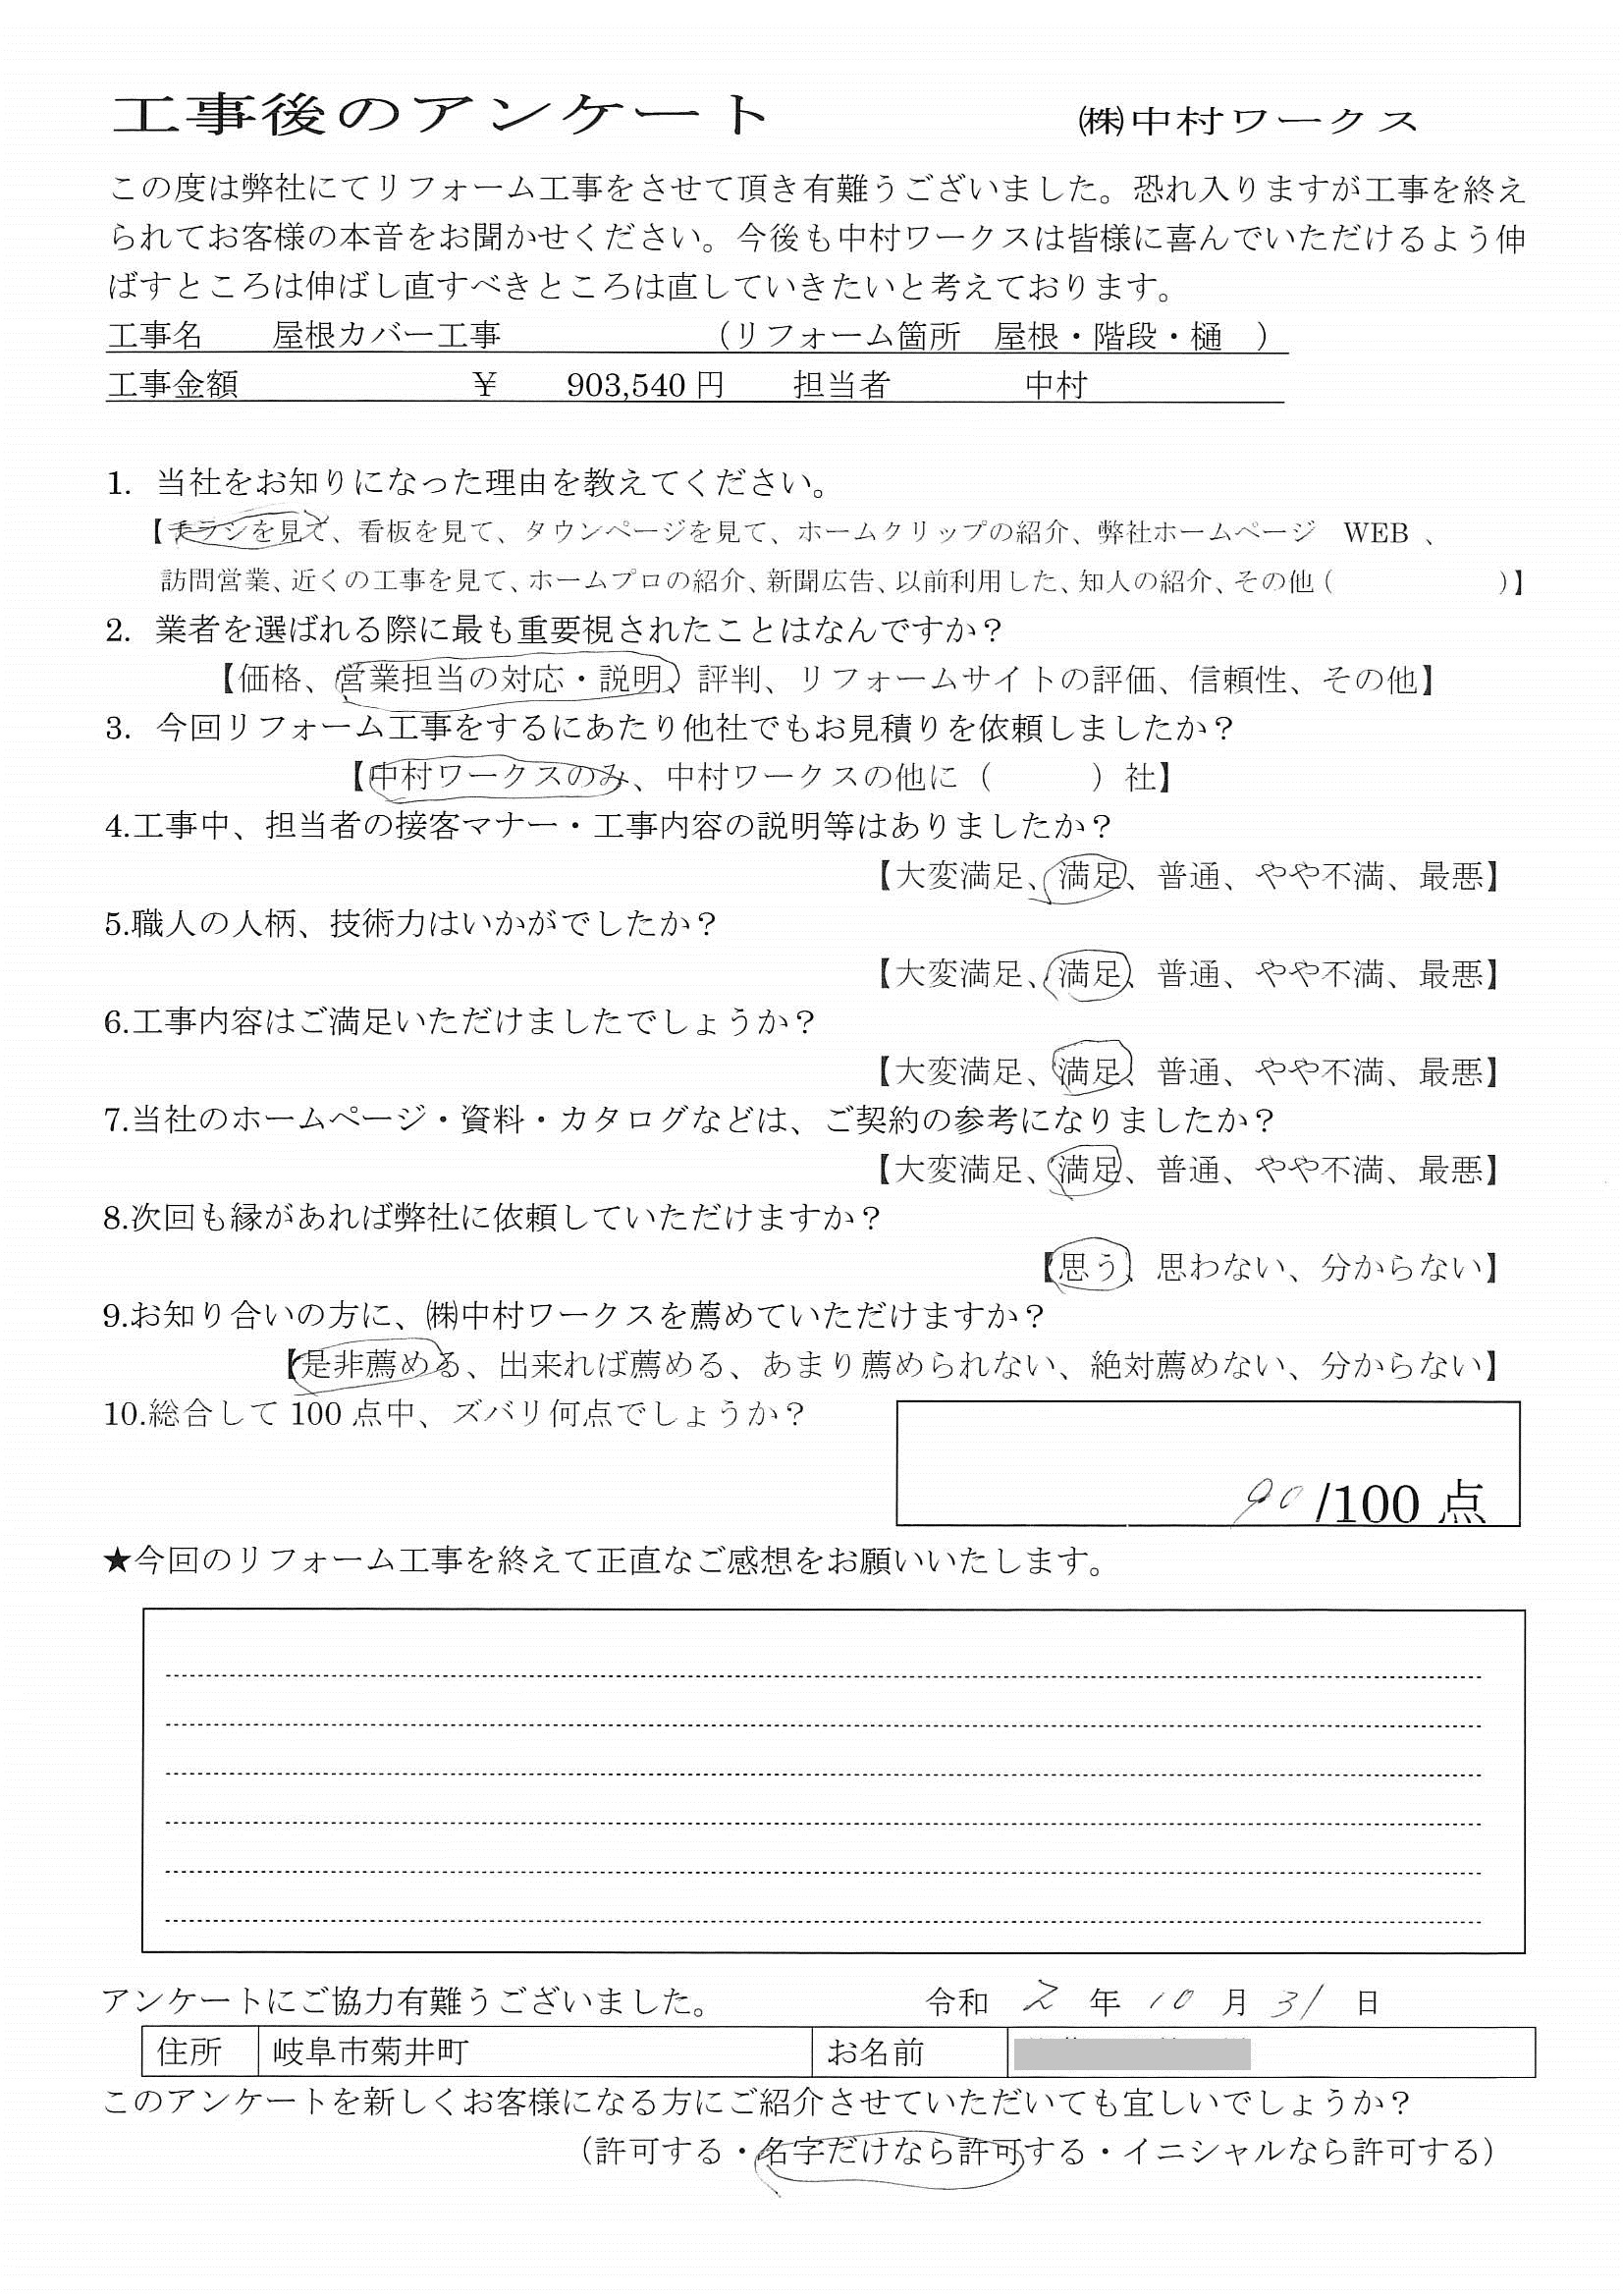 工事後のアンケート　㈱中村ワークス
この度は弊社にてリフォーム工事をさせて頂き有難うございました。恐れ入りますが工事を終え
られてお客様の本音をお聞かせください。今後も中村ワークスは皆様に喜んでいただけるよう伸
ばすところは伸ばし直すべきところは直していきたいと考えております。
工事名　屋根カバー工事　（リフォーム箇所　屋根・階段・樋　）
工事金額　￥　903,540円　担当者　中村
1. 当社をお知りになった理由を教えてください。
【チラシを見て、看板を見て、タウンページを見て、ホームクリップの紹介、弊社ホームページ　WEB 、
訪問営業、近くの工事を見て、ホームプロの紹介、新聞広告、以前利用した、知人の紹介、その他（　　　）】
2. 業者を選ばれる際に最も重要視されたことはなんですか？
【価格、営業担当の対応・説明、評判、リフォームサイトの評価、信頼性、その他】
3. 今回リフォーム工事をするにあたり他社でもお見積りを依頼しましたか？
【中村ワークスのみ、中村ワークスの他に（　　　）社】
4.工事中、担当者の接客マナー・工事内容の説明等はありましたか？
【大変満足、満足、普通、やや不満、最悪】
5.職人の人柄、技術力はいかがでしたか？
【大変満足、満足、普通、やや不満、最悪】
6.工事内容はご満足いただけましたでしょうか？
【大変満足、満足、普通、やや不満、最悪】
7.当社のホームページ・資料・カタログなどは、ご契約の参考になりましたか？
【大変満足、満足、普通、やや不満、最悪】
8.次回も縁があれば弊社に依頼していただけますか？
【思う、思わない、分からない】
9.お知り合いの方に、㈱中村ワークスを薦めていただけますか？
【是非薦める、出来れば薦める、あまり薦められない、絶対薦めない、分からない】
10.総合して 100 点中、ズバリ何点でしょうか？
90 /100 点
★今回のリフォーム工事を終えて正直なご感想をお願いいたします。
アンケートにご協力有難うございました。　令和 2 年 10 月 31 日
住所　岐阜市菊井町　お名前
このアンケートを新しくお客様になる方にご紹介させていただいても宜しいでしょうか？
（許可する・名字だけなら許可する・イニシャルなら許可する）